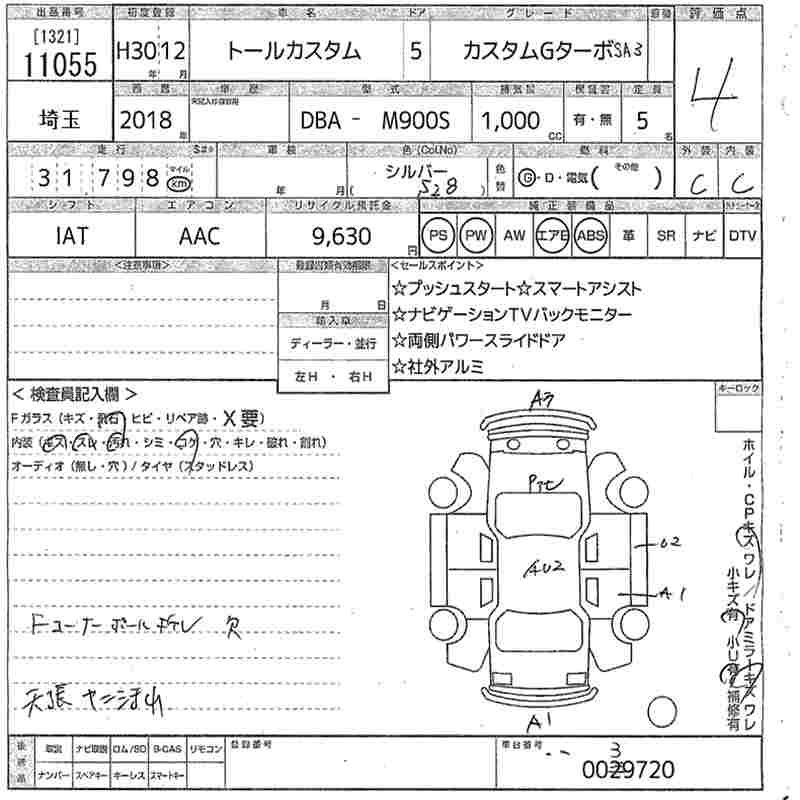 出品番号 初度登録 車名 ドア グレード 評価点
[1321]
11055
H30 12
年 月
トールカスタム
5
カスタムGターボSA3
4
西暦 車歴 型式 排気量 保証書 定員
埼玉
2018 年
DBA - M900S
1,000 CC
有・無
5 名
走行 車検 色(Col.No) 燃料 外装 内装
31,798
マイル
km
年 月
シルバー
(528)
色替
G・D・電気( その他 )
C C
シフト エアコン リサイクル預託金 純正装備品
IAT
AAC
9,630 円
PS PW AW エアB ABS 革 SR ナビ DTV
<注意事項>
月 日
輸入車
ディーラー・並行
左H ・ 右H
<セールスポイント>
☆プッシュスタート☆スマートアシスト
☆ナビゲーションTVバックモニター
☆両側パワースライドドア
☆社外アルミ
< 検査員記入欄 >
Fガラス(キズ・飛石・ヒビ・リペア跡・X要)
内装(キズ・スレ・汚れ・シミ・コゲ・穴・キレ・破れ・割れ)
オーディオ(無し・穴)/タイヤ(スタッドレス)
Fコーナーポール折レ 欠
天張 ヤニ汚れ
A3
AU2
U2
A1
A1
キーロック
ホイル・CPキズワレ/ドアミラーキズワレ
小キズ有 小U有 補修有
後送品
取説 ナビ取説 ロム/SD B-CAS リモコン
ナンバー スペアキー キーレス スマートキー
登録番号
車台番号
3
0029720